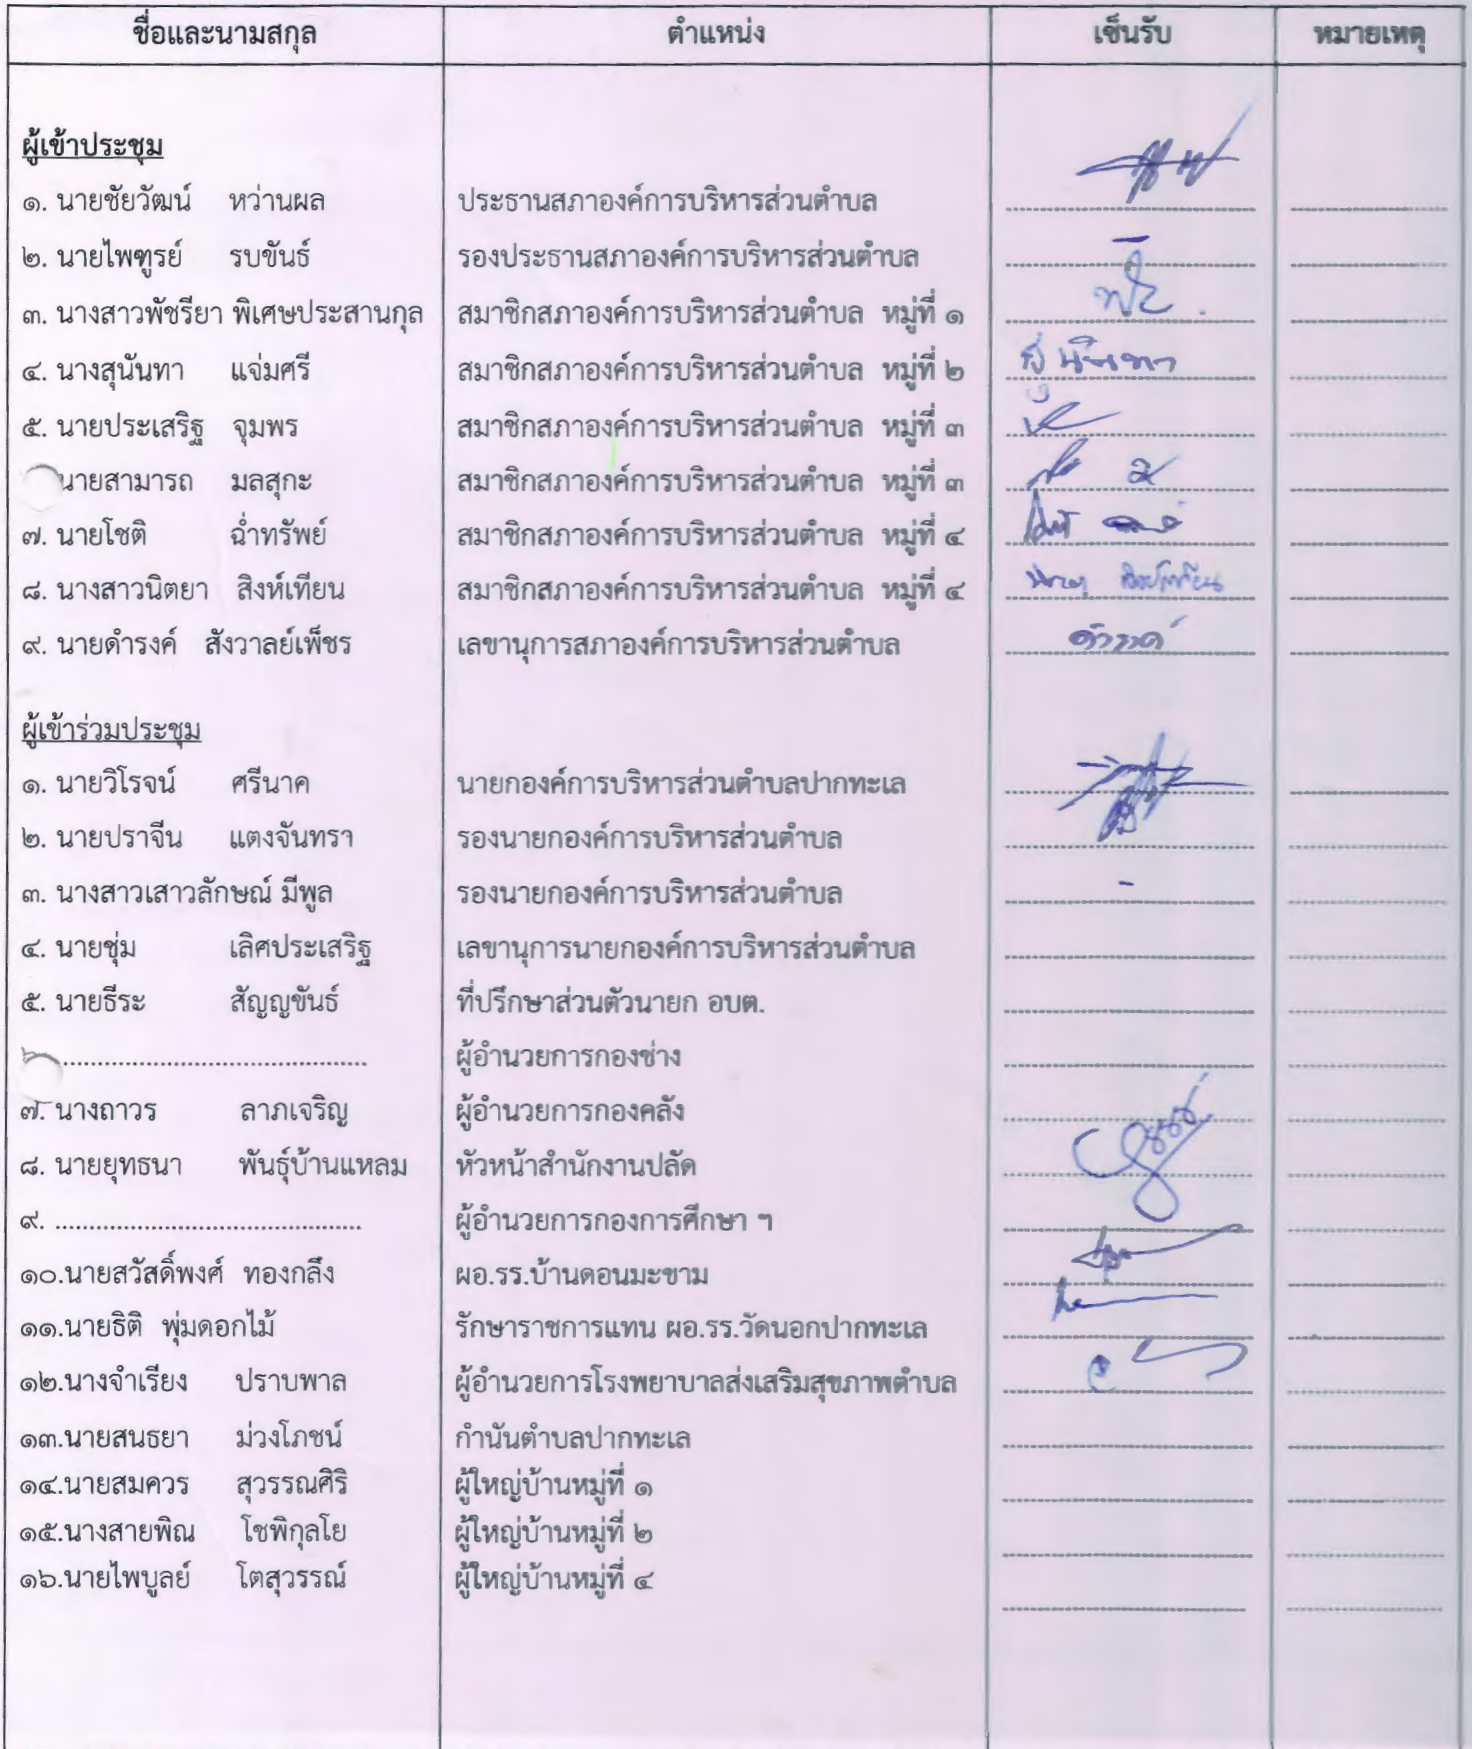 ชื่อและนามสกุล ตำแหน่ง เซ็นรับ หมายเหตุ
ผู้เข้าประชุม
๑. นายชัยวัฒน์ หว่านผล ประธานสภาองค์การบริหารส่วนตำบล
๒. นายไพฑูรย์ รบขันธ์ รองประธานสภาองค์การบริหารส่วนตำบล -
๓. นางสาวพัชรียา พิเศษประสานกุล สมาชิกสภาองค์การบริหารส่วนตำบล หมู่ที่ ๑
๔. นางสุนันทา แจ่มศรี สมาชิกสภาองค์การบริหารส่วนตำบล หมู่ที่ ๒ สุนันทา
๕. นายประเสริฐ จุมพร สมาชิกสภาองค์การบริหารส่วนตำบล หมู่ที่ ๓
นายสามารถ มลสุกะ สมาชิกสภาองค์การบริหารส่วนตำบล หมู่ที่ ๓
๗. นายโชติ ฉ่ำทรัพย์ สมาชิกสภาองค์การบริหารส่วนตำบล หมู่ที่ ๔
๘. นางสาวนิตยา สิงห์เทียน สมาชิกสภาองค์การบริหารส่วนตำบล หมู่ที่ ๔ นิตยา สิงห์เทียน
๙. นายดำรงค์ สังวาลย์เพ็ชร เลขานุการสภาองค์การบริหารส่วนตำบล ดำรงค์
ผู้เข้าร่วมประชุม
๑. นายวิโรจน์ ศรีนาค นายกองค์การบริหารส่วนตำบลปากทะเล
๒. นายปราจีน แตงจันทรา รองนายกองค์การบริหารส่วนตำบล
๓. นางสาวเสาวลักษณ์ มีพูล รองนายกองค์การบริหารส่วนตำบล -
๔. นายชุ่ม เลิศประเสริฐ เลขานุการนายกองค์การบริหารส่วนตำบล
๕. นายธีระ สัญญขันธ์ ที่ปรึกษาส่วนตัวนายก อบต.
๖. ............................................. ผู้อำนวยการกองช่าง
๗. นางถาวร ลาภเจริญ ผู้อำนวยการกองคลัง
๘. นายยุทธนา พันธุ์บ้านแหลม หัวหน้าสำนักงานปลัด
๙. ............................................. ผู้อำนวยการกองการศึกษา ฯ
๑๐.นายสวัสดิ์พงศ์ ทองกลึง ผอ.รร.บ้านดอนมะขาม
๑๑.นายธิติ พุ่มดอกไม้ รักษาราชการแทน ผอ.รร.วัดนอกปากทะเล
๑๒.นางจำเรียง ปราบพาล ผู้อำนวยการโรงพยาบาลส่งเสริมสุขภาพตำบล
๑๓.นายสนธยา ม่วงโภชน์ กำนันตำบลปากทะเล
๑๔.นายสมควร สุวรรณศิริ ผู้ใหญ่บ้านหมู่ที่ ๑
๑๕.นางสายพิณ โชพิกุลโย ผู้ใหญ่บ้านหมู่ที่ ๒
๑๖.นายไพบูลย์ โตสุวรรณ์ ผู้ใหญ่บ้านหมู่ที่ ๔